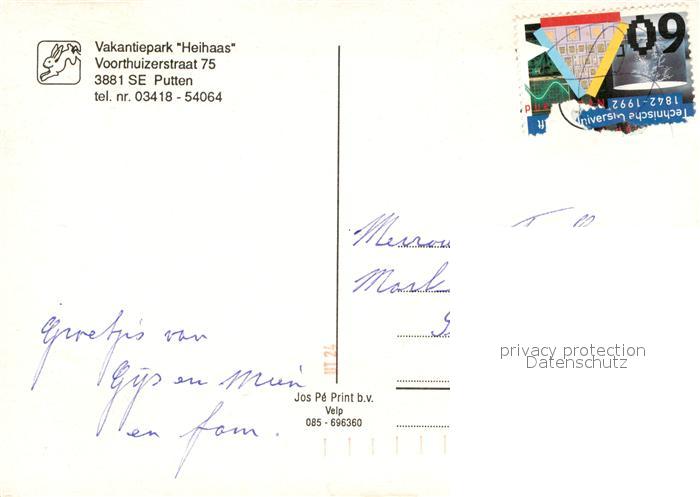 Vakantiepark "Heihaas"
Voorthuizerstraat 75
3881 SE Putten
tel. nr. 03418 - 54064
60
Technische
Universi
1842-1992
ft
Groetjes van
Gijs en Mien
en fam.
Mevrou
Mark
privacy protection
Datenschutz
NT 24
Jos Pé Print b.v.
Velp
085 - 696360